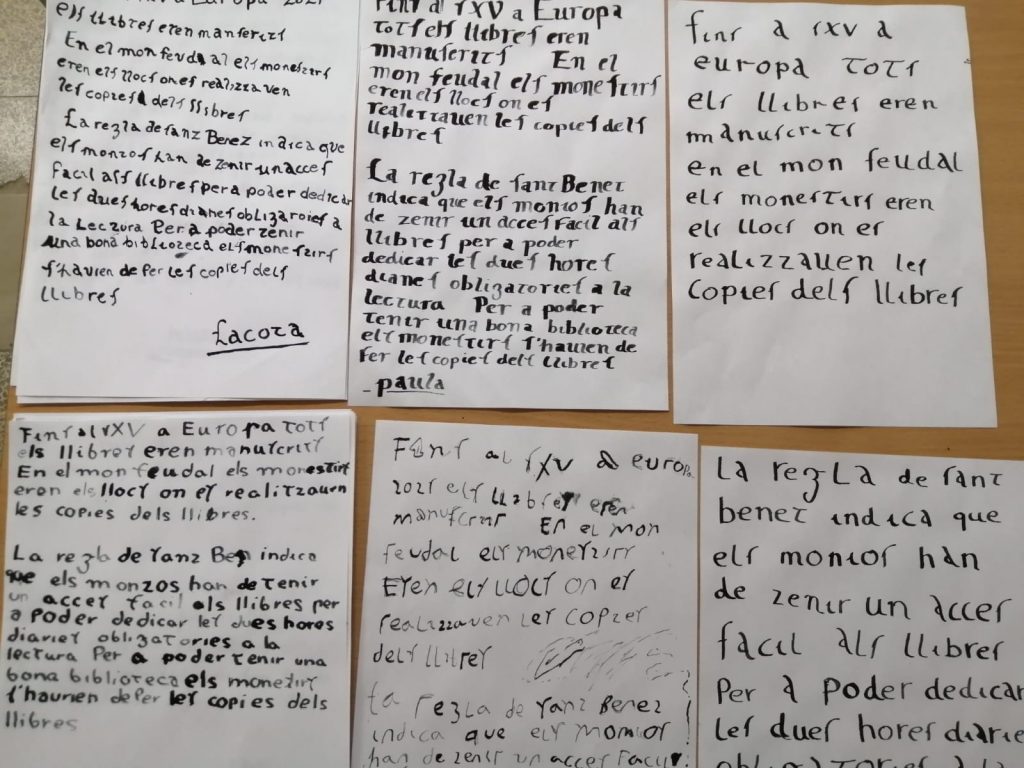 a Europa 2021
els llibres eren manuscrits
En el mon feudal els monestirs
eren els llocs on es realitzaven
les copies dels llibres
La regla de sanz Benez indica que
els monzos han de zenir un acces
facil als llibres per a poder dedicar
les dues hores diaries obligatories a
la Leczura Per a poder zenir
una bona bibliozeca els monestirs
s'haurien de fer les copies dels
llibres
Jacoza
fins al sXV a Europa
tots els llibres eren
manuscrits En el
mon feudal els monestirs
eren els llocs on es
realitzauen les copies dels
llibres
La regla de sanz Benet
indica que els monjos han
de zenir un acces facil als
llibres per a poder
dedicar les dues hores
diaries obligatories a la
lectura Per a poder
tenir una bona biblioteca
els monestirs s'haurien de
fer les copies dels llibres
- paula
fins a sXV a
europa tots
els llibres eren
manuscrits
en el mon feudal
els monestirs eren
els llocs on es
realitzzauen les
copies dels llibres
Fins al sXV a Europa tots
els llibres eren manuscrits
En el mon feudal els monestirs
eron els llocs on es realitzauen
les copies dels llibres.
La regla de sanz Ben indica
que els monzos han de tenir
un acces facil als llibres per
a poder dedicar les dues hores
diaries obligatories a la
lectura Per a poder tenir una
bona biblioteca els monestirs
s'haurien de Per les copies dels
llibres
Fins al sXV a europa
2021 els llibres eren
manuscrits En el mon
feudal els monestirs
Eren els llocs on es
realitzaven les copies
dels llibres
la regla de sanz Benez
indica que els monjos
han de zenir un acces facil
La regla de sant
benet indica que
els monjos han
de zenir un acces
facil als llibres
Per a poder dedicar
les dues hores diarie
obligatories a la